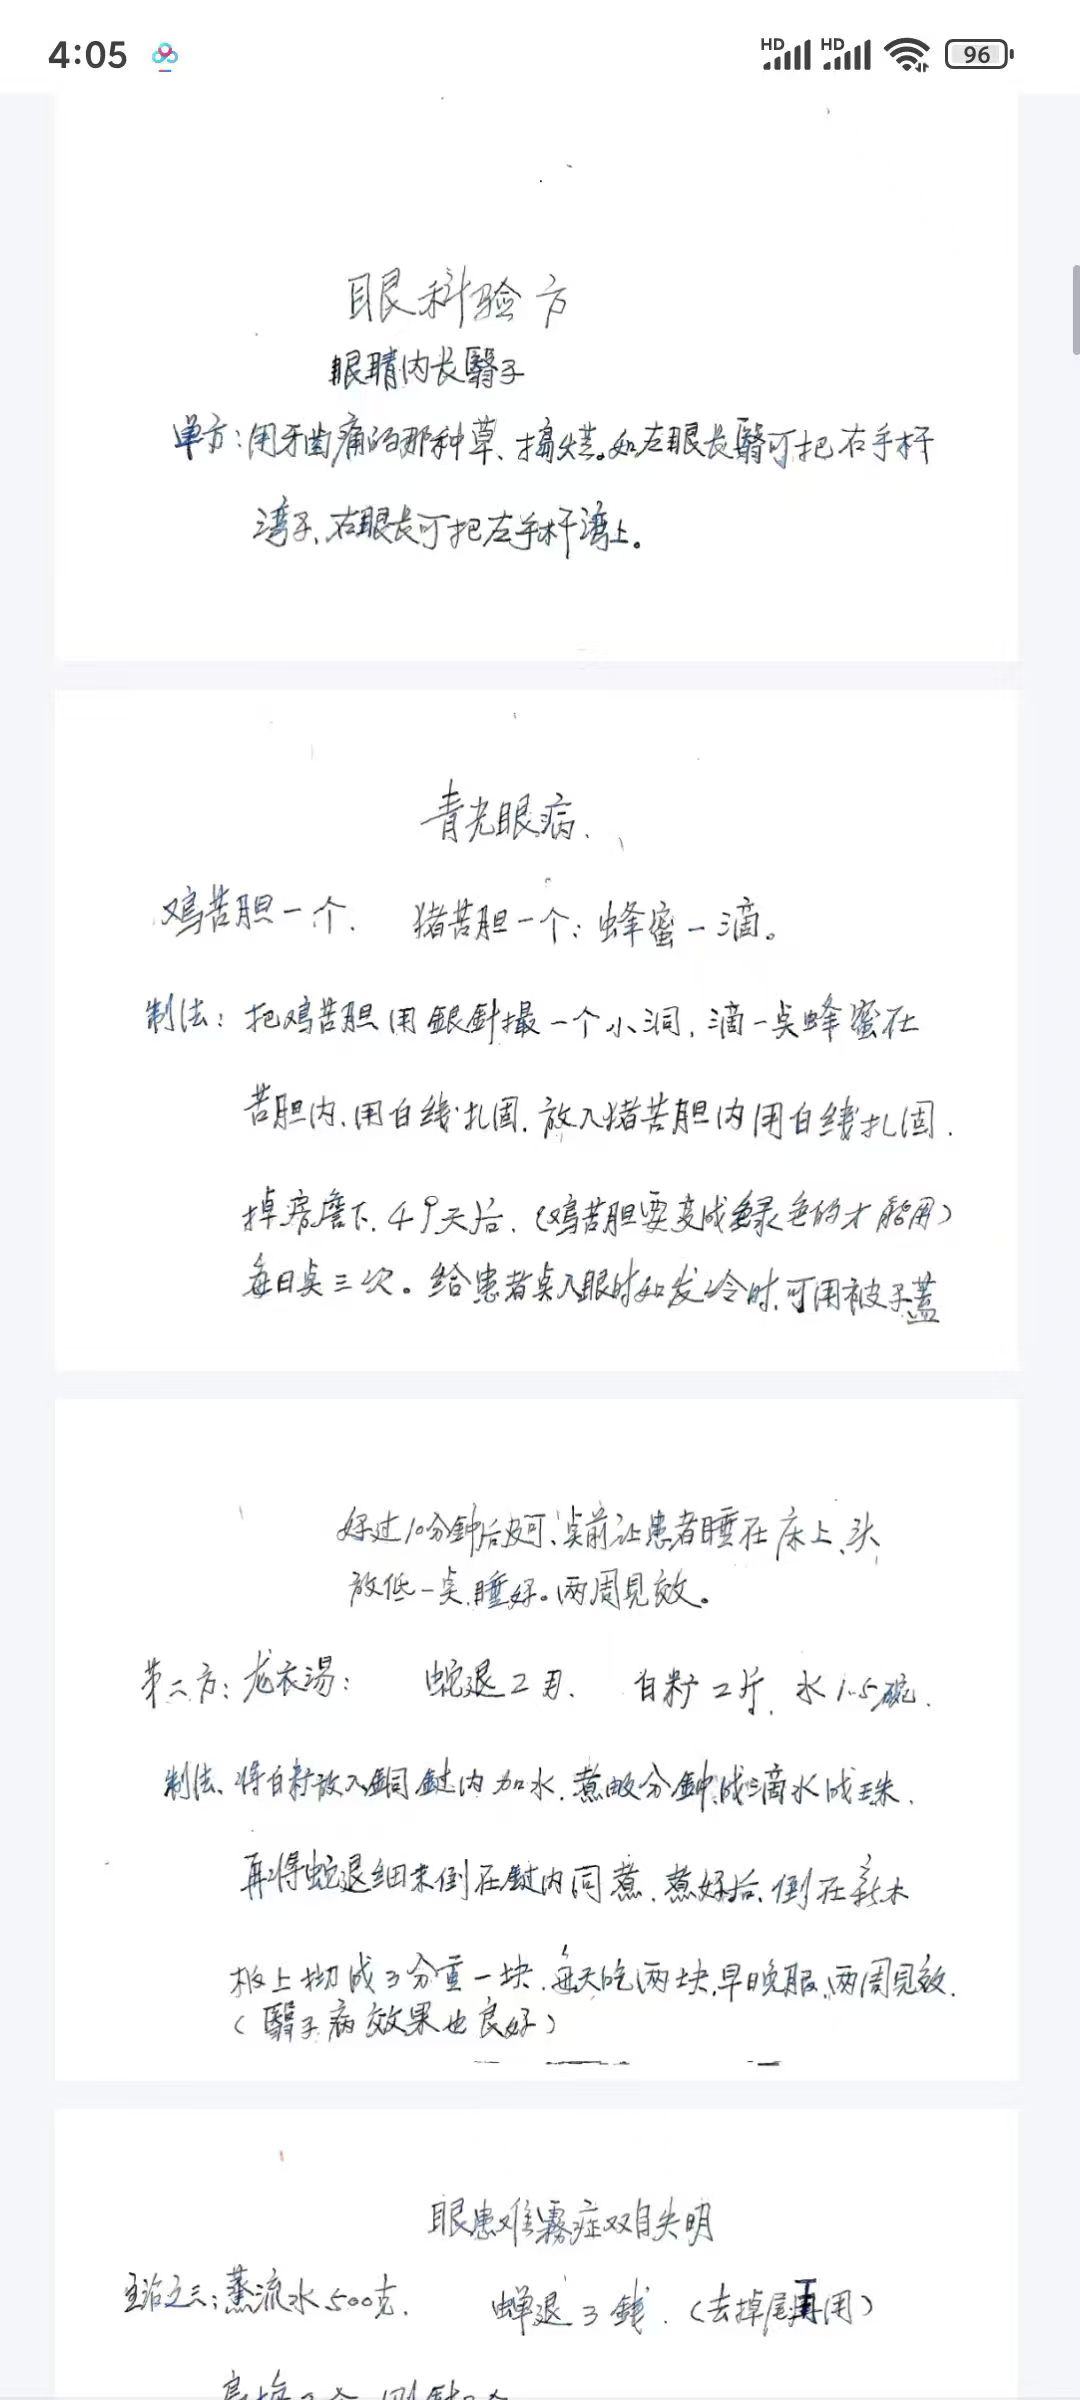 4:05
HD HD 96
眼科验方
眼睛内长醫子
单方：用牙齿痛的那种草、搞烂。如左眼长醫可把右手杆
湾子、右眼长可把左手杆湾上。
青光眼病.
鸡苦胆一个. 猪苦胆一个：蜂蜜一滴。
制法：把鸡苦胆用銀針撮一个小洞，滴一点蜂蜜在
苦胆内、用白线扎固，放入猪苦胆内用白线扎固.
掉房詹下、49天后、（鸡苦胆要变成绿色的才能用）
每日点三次。给患者点入眼时如发冷时，可用被子蓋
好过10分鈡后即可、点前让患者睡在床上、头
放低一点睡好。两周見效。
第二方：龙衣湯： 蛇退2 白籵2斤、水1.5碗.
制法、将白籵放入銅 内加水、煮 分鈡 滴水成珠.
再将蛇退细末倒在 内同煮、煮好后、倒在新木
板上 成3分重一块、每天吃两块，早晚服、两周見效.
（醫子病效果也良好）
眼患难霧症双目失明
主治之三：蒸流水500克. 蝉退3錢.（去掉尾 用）